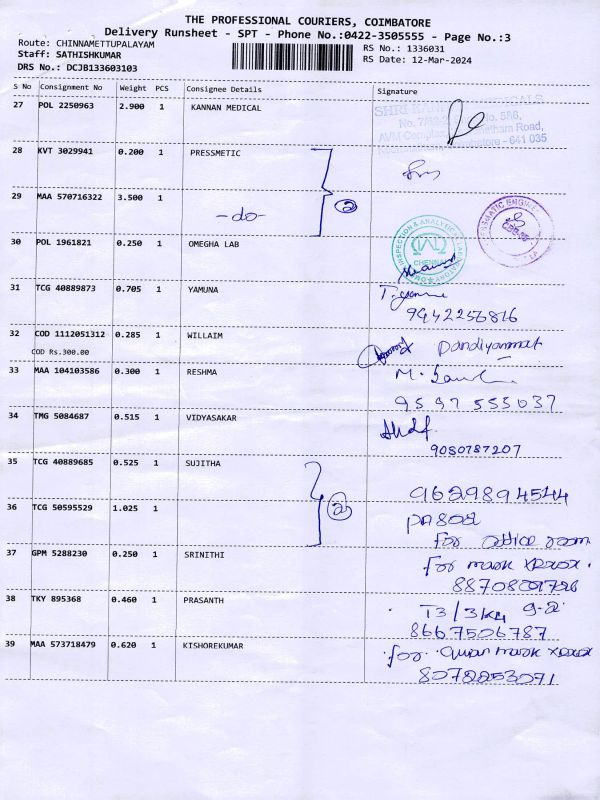 THE PROFESSIONAL COURIERS, COIMBATORE
Delivery Runsheet - SPT - Phone No.:0422-3505555 - Page No.:3
Route: CHINNAMETTUPALAYAM RS No.: 1336031
Staff: SATHISHKUMAR RS Date: 12-Mar-2024
DRS No.: DCJB133603103
S No Consignment No Weight PCS Consignee Details Signature
27 POL 2250963 2.900 1 KANNAN MEDICAL
28 KVT 3029941 0.200 1 PRESSMETIC
29 MAA 570716322 3.500 1 -do- 2
30 POL 1961821 0.250 1 OMEGHA LAB
31 TCG 40889873 0.705 1 YAMUNA
9442256816
32 COD 1112051312 0.285 1 WILLAIM Pandiyammal
COD Rs.300.00
33 MAA 104103586 0.300 1 RESHMA
9597 555037
34 TMG 5084687 0.515 1 VIDYASAKAR
9080787207
35 TCG 40889685 0.525 1 SUJITHA
9629894544
36 TCG 50595529 1.025 1 2
for office room
37 GPM 5288230 0.250 1 SRINITHI
for mark xerox.
38 TKY 895368 0.460 1 PRASANTH
8667506787
39 MAA 573718479 0.620 1 KISHOREKUMAR
for mark xerox
8072253071